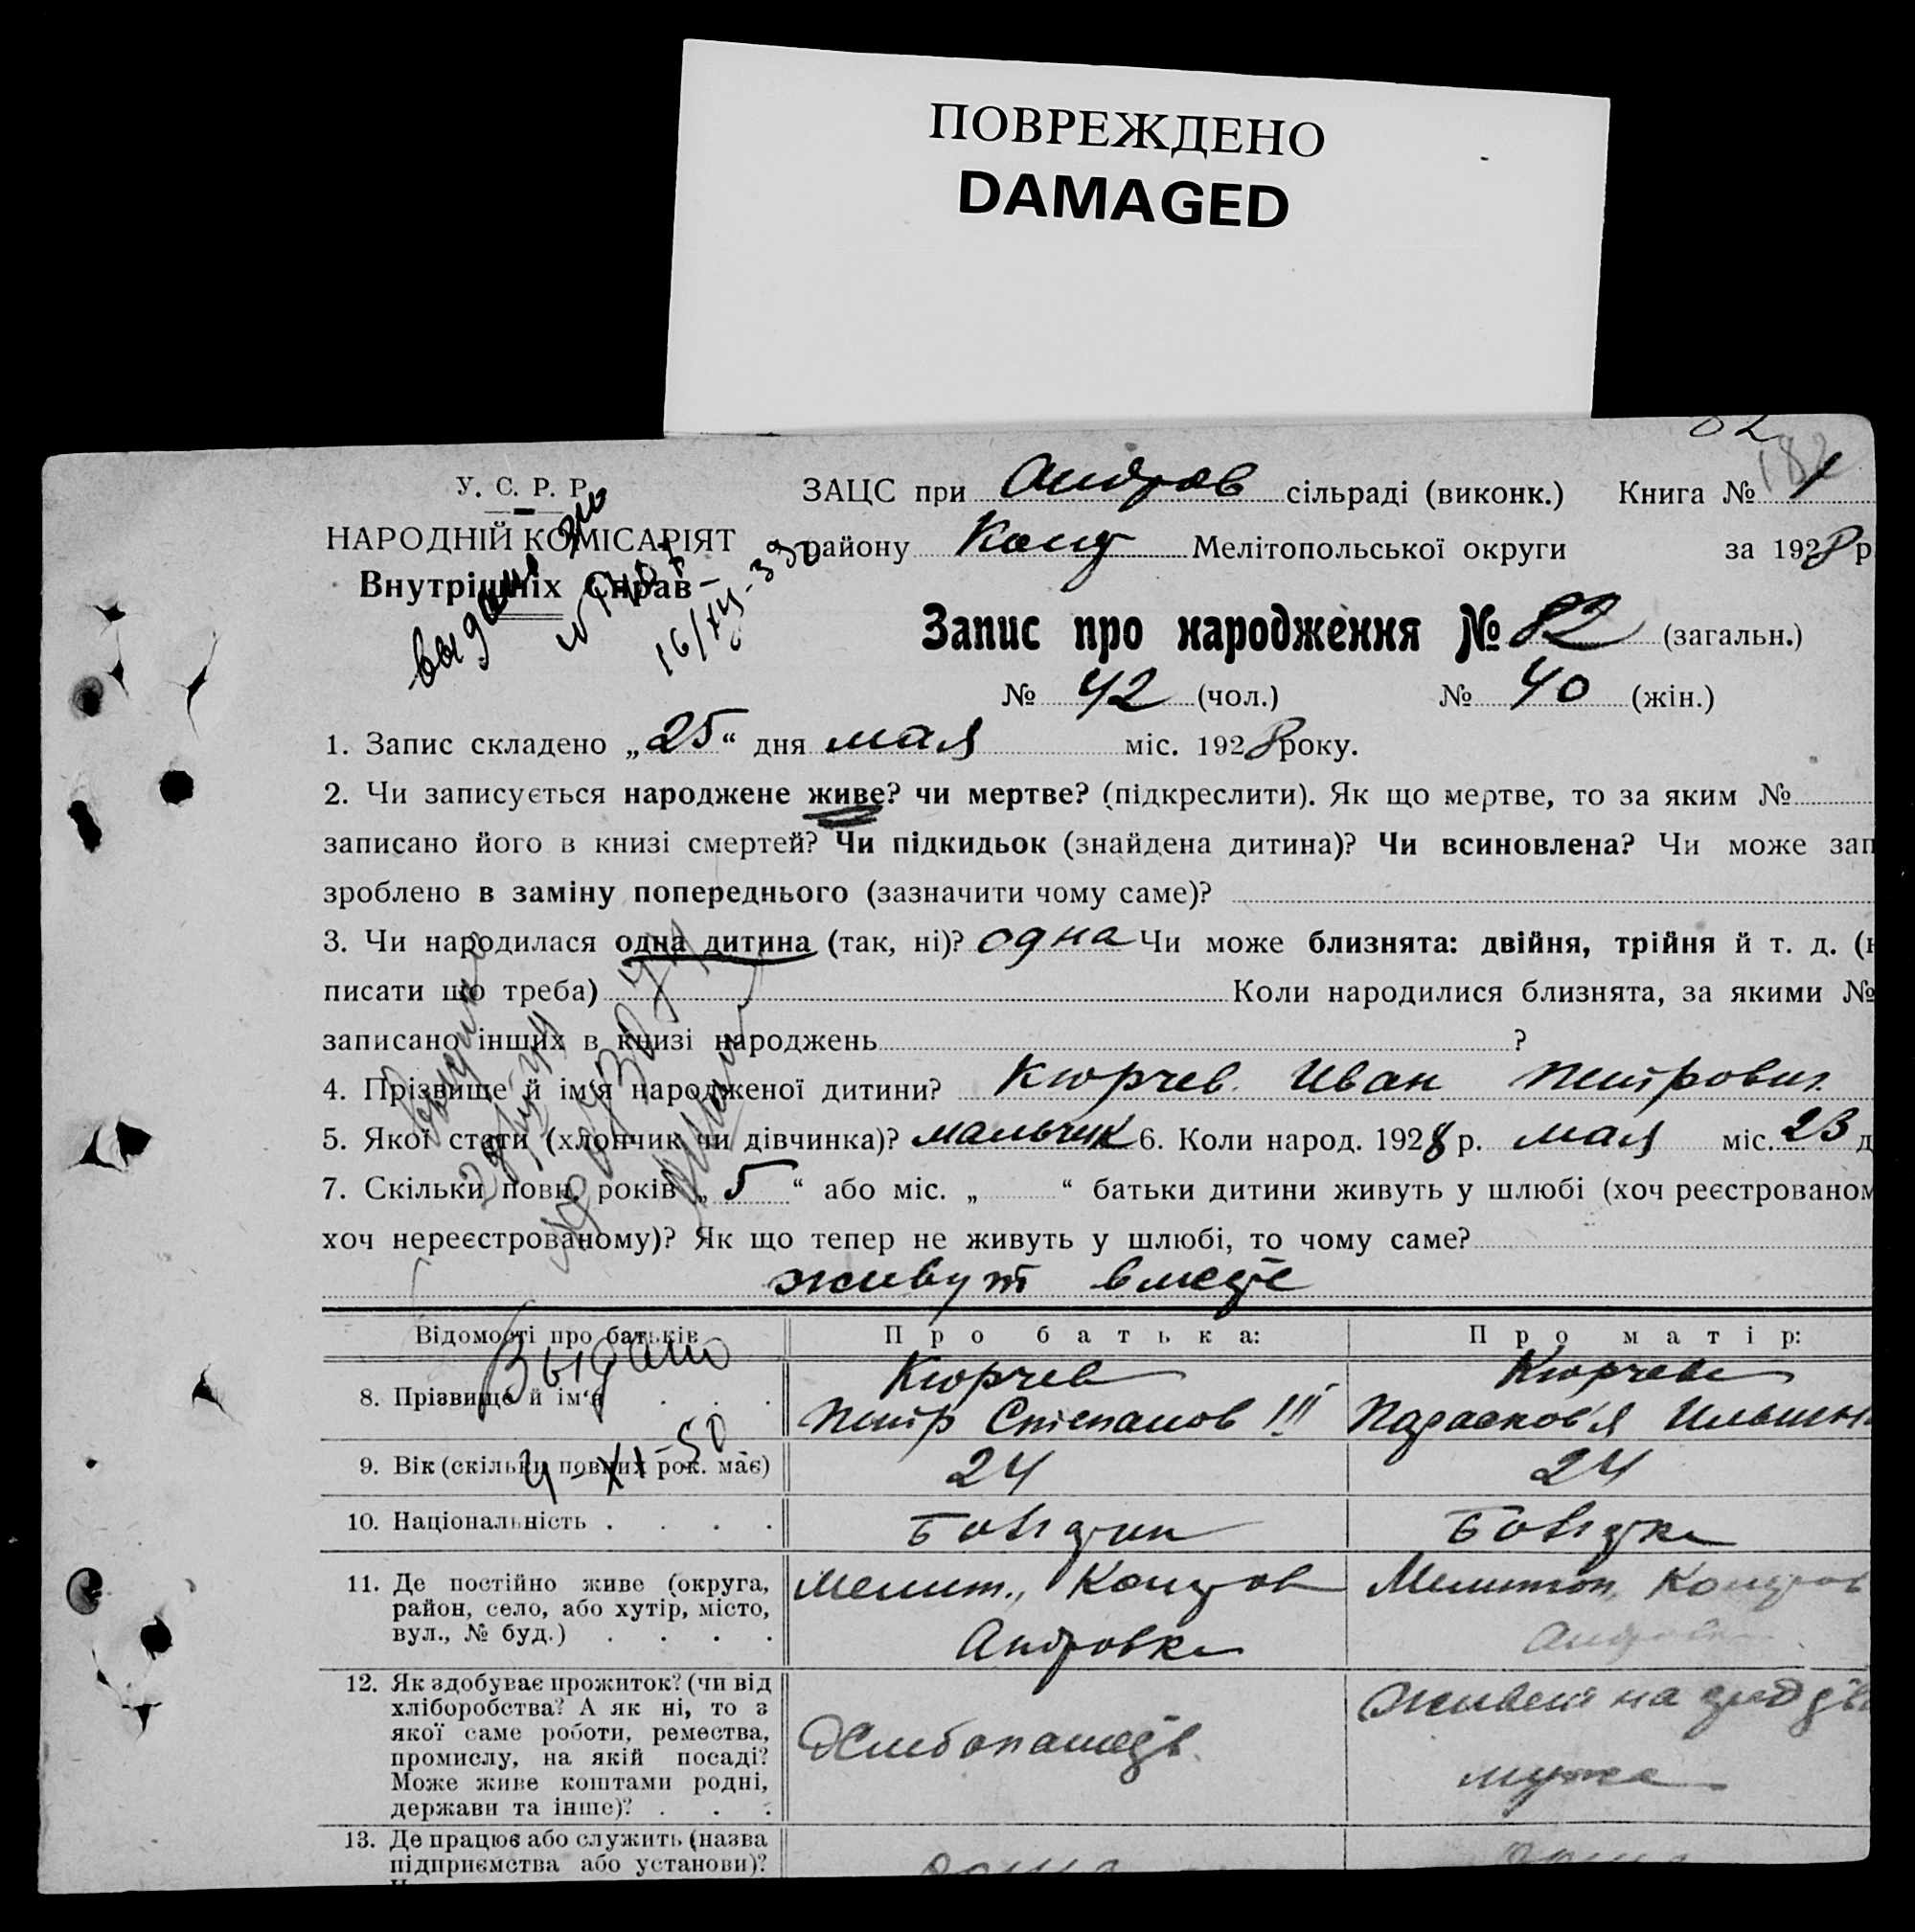 ПОВРЕЖДЕНО
DAMAGED
182
У. С. Р. Р.
НАРОДНІЙ КОМІСАРІЯТ
Внутрішніх Справ
ЗАЦС при Андров сільраді (виконк.) Книга № 1
району Мелітопольської округи за 1928 р
Запис про народження № 82 (загальн.)
№ 42 (чол.) № 40 (жін.)
1. Запис складено „25“ дня мая міс. 1928 року.
2. Чи записується народжене живе? чи мертве? (підкреслити). Як що мертве, то за яким №
записано його в книзі смертей? Чи підкидьок (знайдена дитина)? Чи всиновлена? Чи може зап
зроблено в заміну попереднього (зазначити чому саме)?
3. Чи народилася одна дитина (так, ні)? одна Чи може близнята: двійня, трійня й т. д. (н
писати що треба) Коли народилися близнята, за якими №
записано інших в книзі народжень ?
4. Прізвище й ім'я народженої дитини? Кюрчев Иван Петрович
5. Якої стати (хлопчик чи дівчинка)? мальчик 6. Коли народ. 1928 р. мая міс. 23 д
7. Скільки повн. років „5“ або міс. „ “ батьки дитини живуть у шлюбі (хоч реєстрованом
хоч нереєстрованому)? Як що тепер не живуть у шлюбі, то чому саме?
живут вместе
Відомості про батьків Про батька: Про матір:
Выдано
4-XI-50
8. Прізвище й ім'я Кюрчев Кюрчева
Петр Степанов !!! Парасковья
9. Вік (скільки повних рок. має) 24 24
10. Національність Болгарин Болгарка
11. Де постійно живе (округа, район, село, або хутір, місто, вул., № буд.) Мелит.,
Андровка
12. Як здобуває прожиток? (чи від
хліборобства? А як ні, то з
якої саме роботи, ремества,
промислу, на якій посаді?
Може живе коштами родні,
держави та інше)?
Хлебопашест.
на
мужа
13. Де працює або служить (назва
підприємства або установи)?